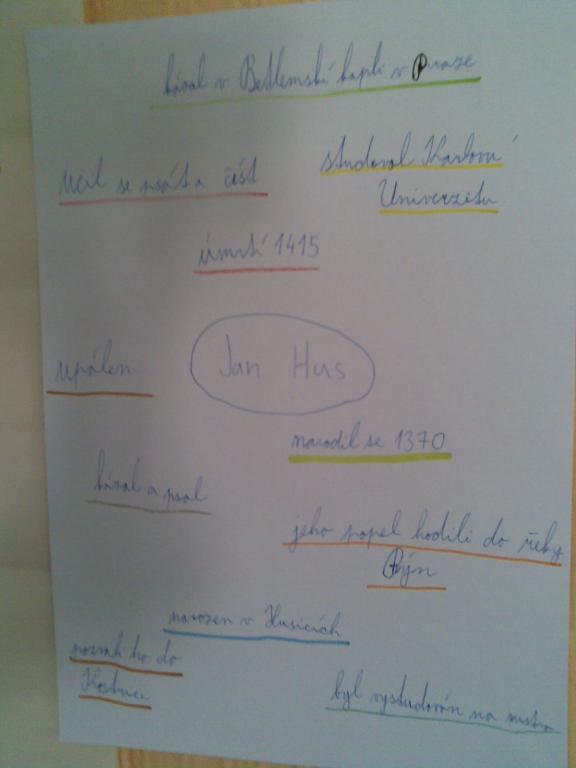 kázal v Betlemské kapli v Praze
učil se psát a číst
studoval Karlovu
Univerzitu
úmrtí 1415
upálen
Jan Hus
narodil se 1370
kázal a psal
jeho popel hodili do řeky
Rýn
narozen v Husicích
pozvali ho do
Kostnice
byl vystudován na mistra